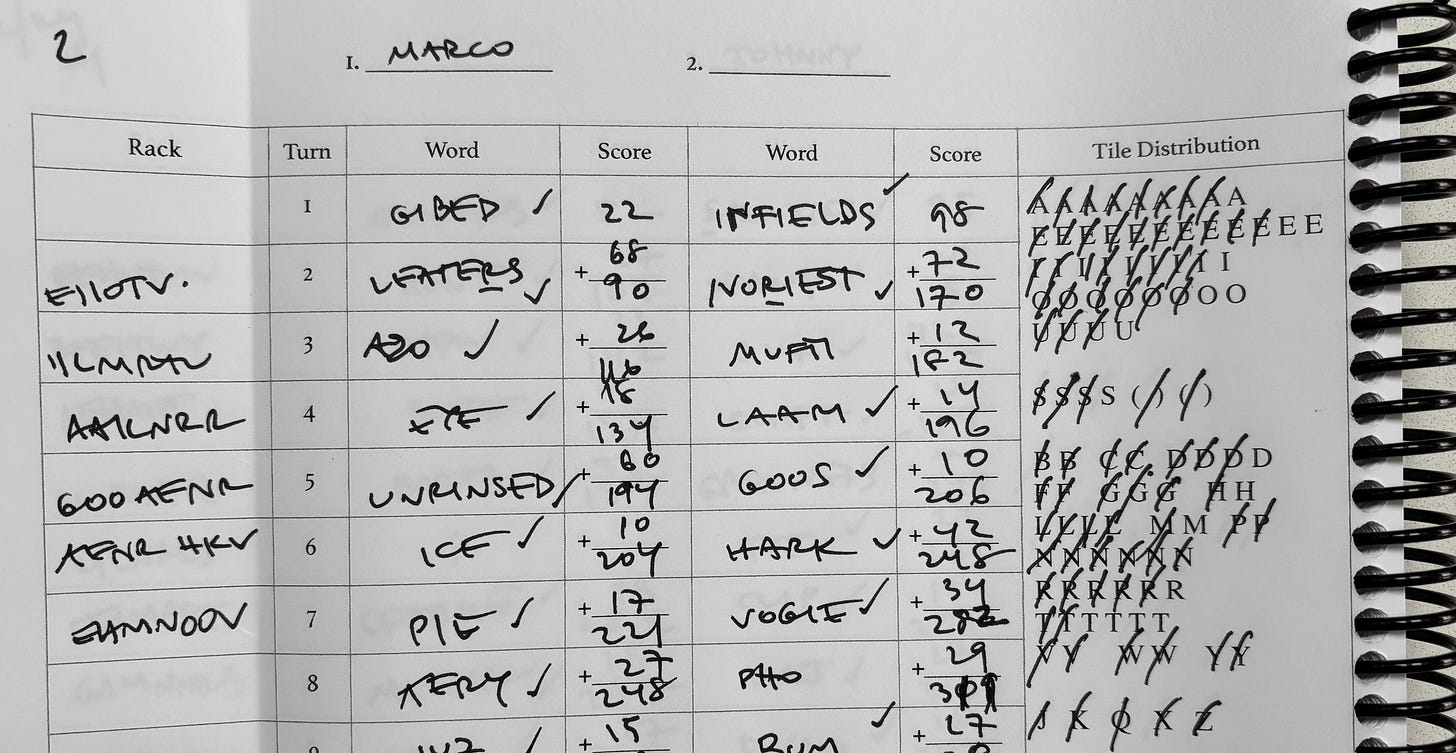 2
1. MARCO 2.
Rack Turn Word Score Word Score Tile Distribution
1 GIBED ✓ 22 INFIELDS ✓ 98
AAAAAAAAA
EEEEEEEEEEEE
EIIOTV. 2 LEATERS ✓ + 68 90 IVORIEST ✓ + 72 170
IIIIIIIII
OOOOOOOO
3 AZO ✓ + 26 116 MUFTI + 12 182
UUUU
AAILNRR 4 EYE ✓ + 18 134 LAAM ✓ + 14 196
SSSS ( ) ( )
GOO AENR 5 UNRINSED ✓ + 60 194 GOOS ✓ + 10 206
BB CC DDDD
FF GGG HH
AENR HKV 6 ICE ✓ + 10 204 HARK ✓ + 42 248
LLLL MM PP
NNNNNN
EIAMNOOV 7 PIE ✓ + 17 221 VOGIE ✓ + 34 282
RRRRRR
TTTTTT
8 AERY ✓ + 27 248 PHO + 29
VV WW YY
15 BUM ✓ + 27
J K Q X Z